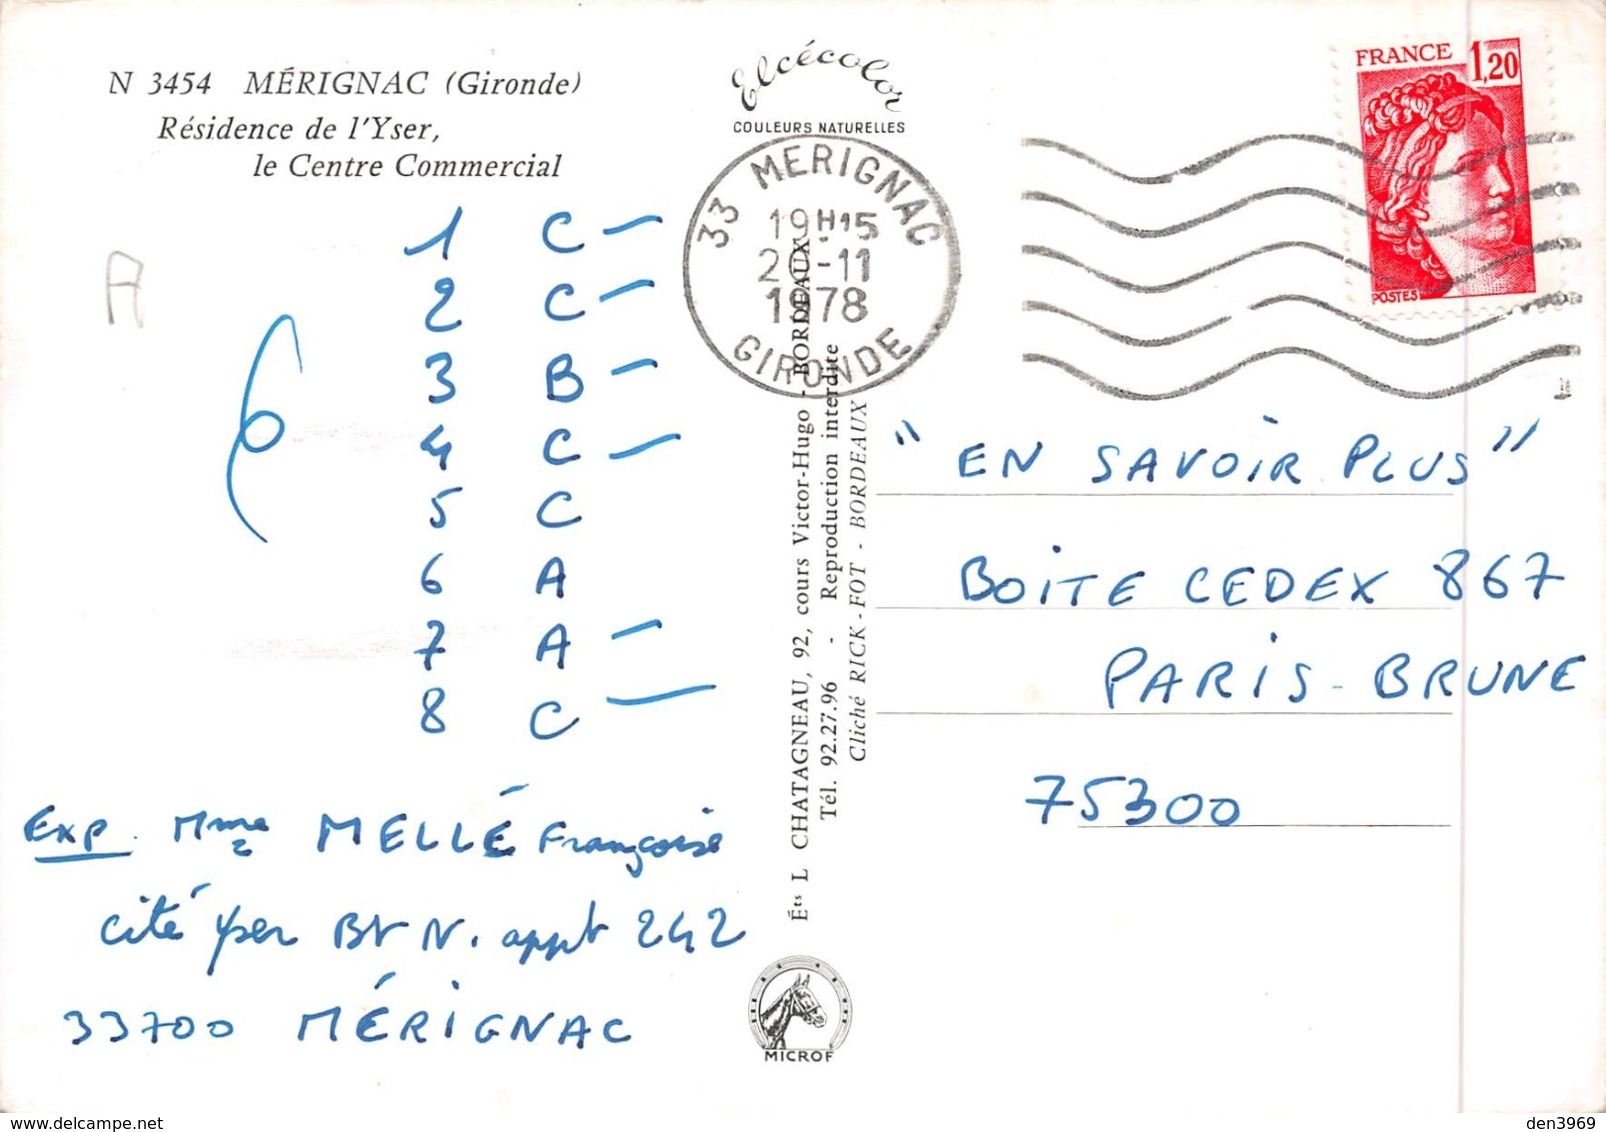 N 3454 MÉRIGNAC (Gironde)
Résidence de l'Yser,
le Centre Commercial
A
1 C –
2 C –
3 B –
4 C –
5 C
6 A
7 A –
8 C –
6
Exp. Mme MELLÉ Françoise
cité Yser Bt N. appt 242
33700 MÉRIGNAC
Elcécolor
COULEURS NATURELLES
33 MERIGNAC
19H15
-11
1978
GIRONDE
Éts L CHATAGNEAU, 92, cours Victor-Hugo - BORDEAUX
Tél. 92.27.96 - Reproduction interdite
Cliché RICK-FOT - BORDEAUX
MICROF
FRANCE 1,20
POSTES
"EN SAVOIR PLUS"
BOITE CEDEX 867
PARIS-BRUNE
75300
www.delcampe.net
den3969